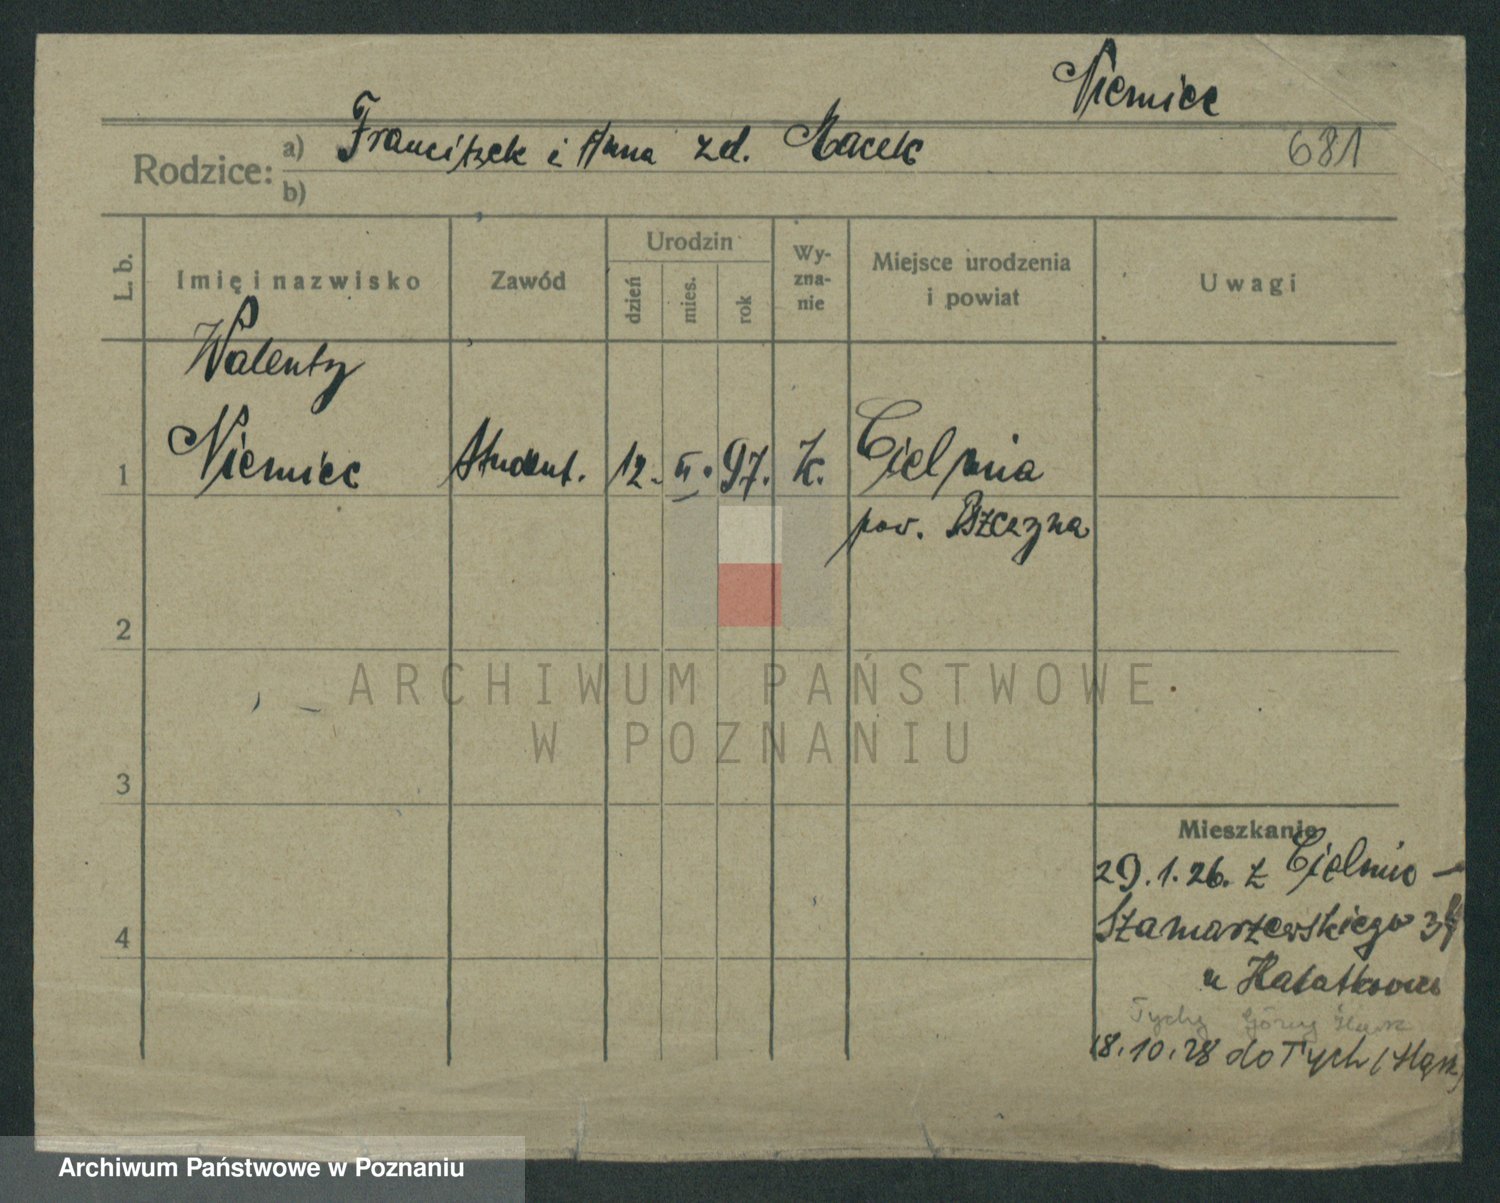 Niemiec
681
Rodzice: a) Franciszek i Anna zd. Macek
b)
L. b.
Imię i nazwisko
Zawód
Urodzin
dzień
mies.
rok
Wy-
zna-
nie
Miejsce urodzenia
i powiat
Uwagi
Walenty
1 Niemiec Student. 12. II. 97. K. Cielmia
pow. Pszczyna
2
ARCHIWUM PAŃSTWOWE
W POZNANIU
3
Mieszkanie
29.1.26. z Cielmic –
4
Szamarzewskiego
u
Tychy Górny Śląsk
18.10.28 do Tych (Śląsk)
Archiwum Państwowe w Poznaniu